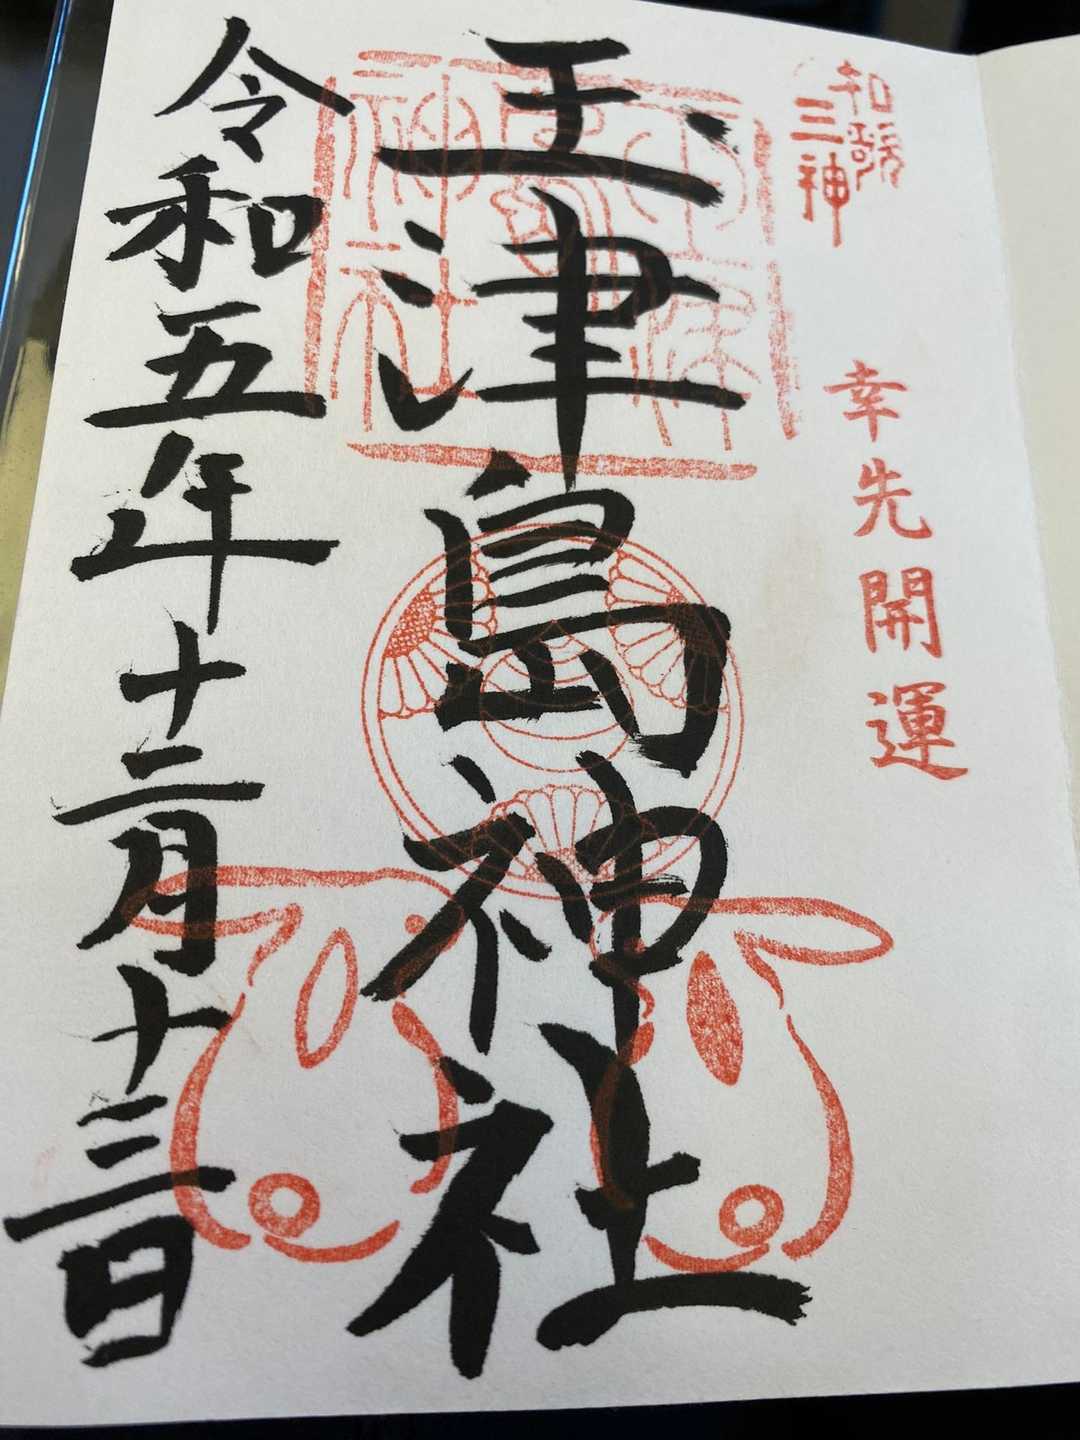 和歌
三神
幸先開運
玉津島神社
令和五年十二月十三日